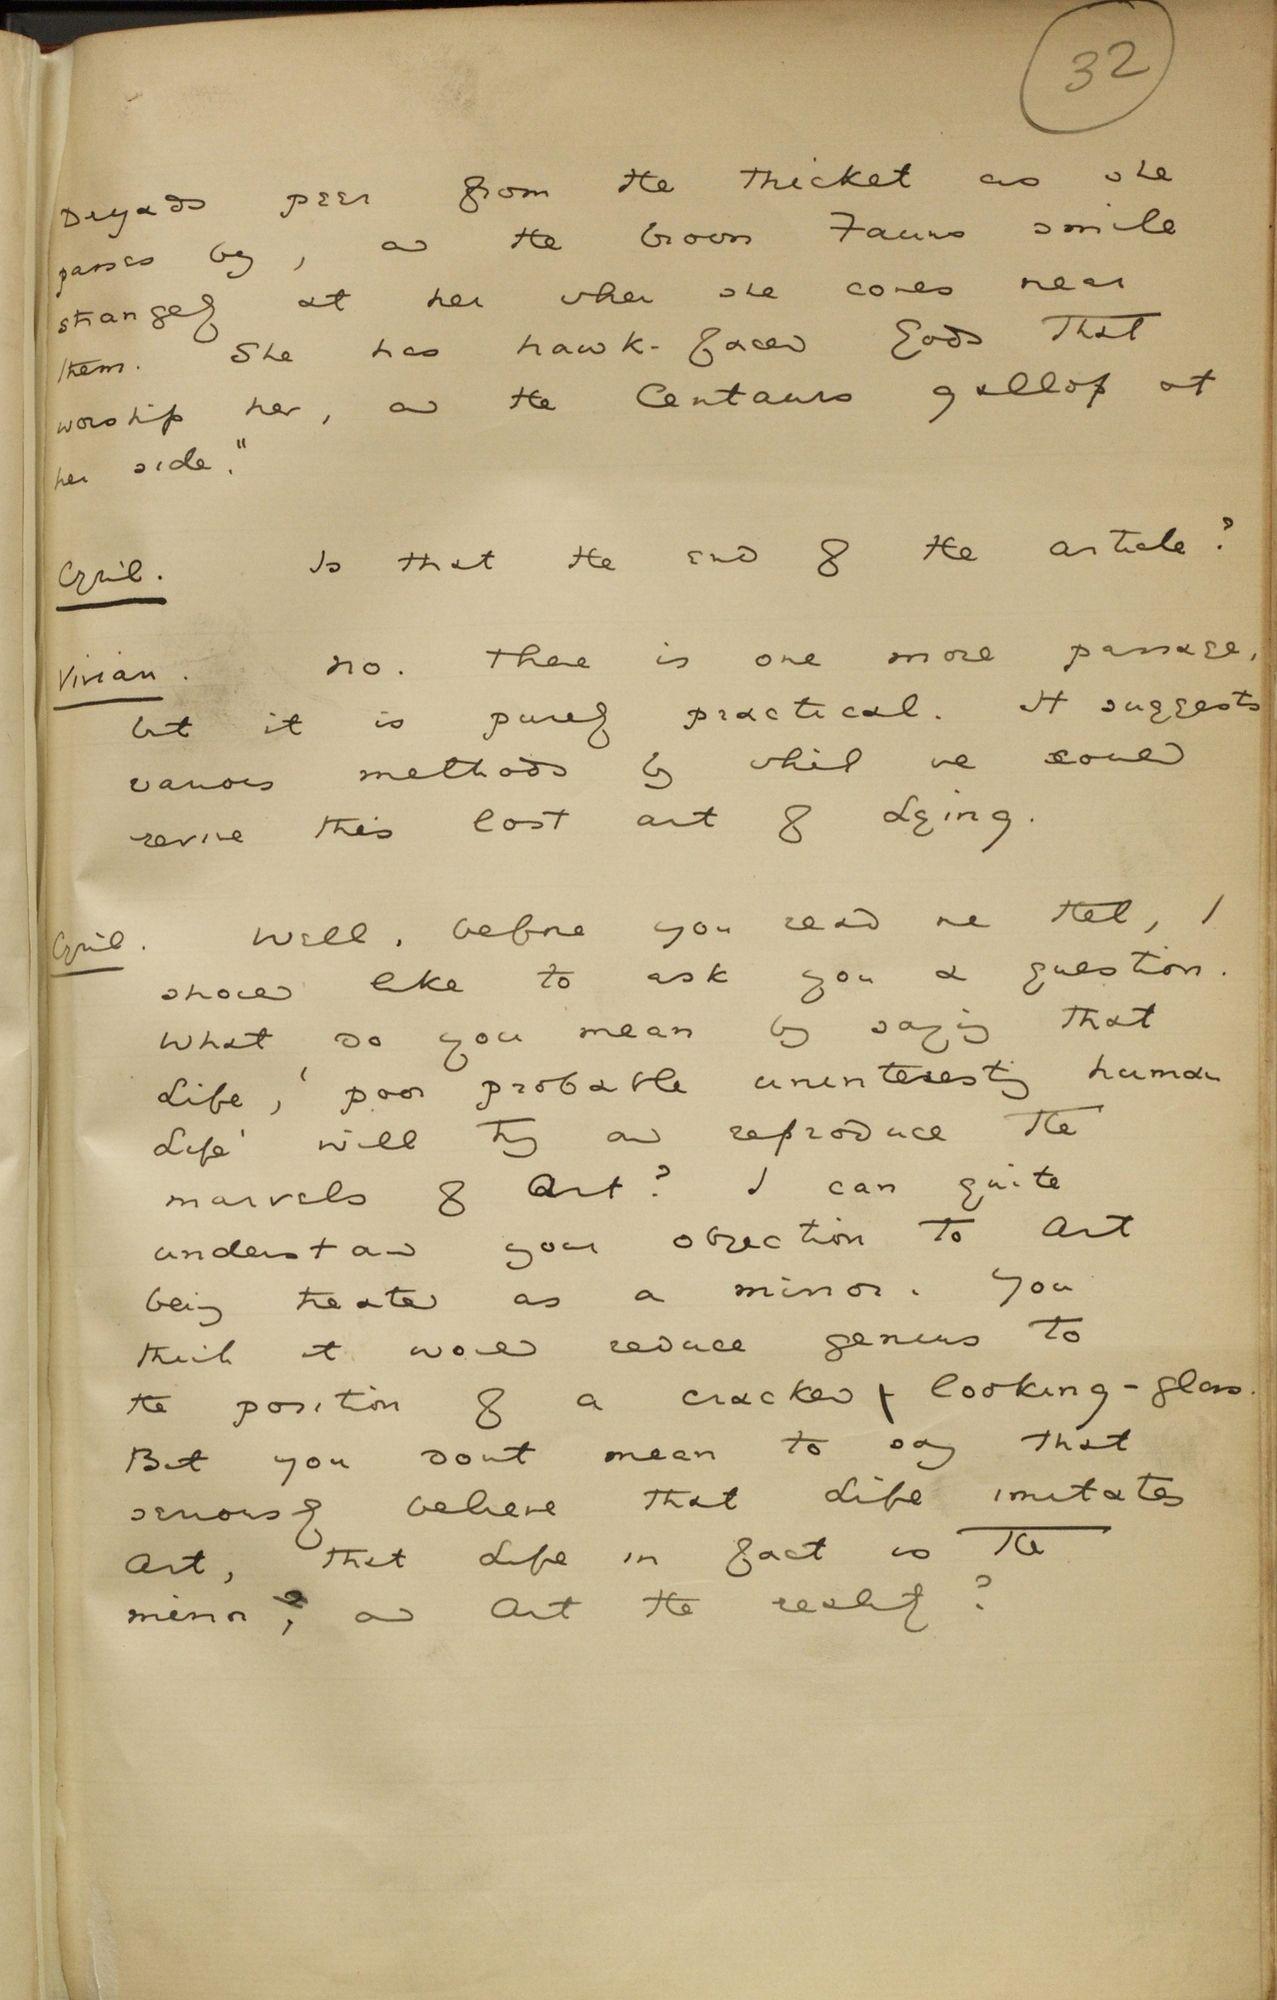 32
Dryads peer from the thicket as she
passes by, and the brown Fauns smile
strangely at her when she comes near
them. She has hawk-faced Gods that
worship her, and the Centaurs gallop at
her side."
Cyril. Is that the end of the article?
Vivian. No. There is one more passage,
but it is purely practical. It suggests
various methods by which we could
revive this lost art of Lying.
Cyril. Well, before you read me that, I
should like to ask you a question.
What do you mean by saying that
Life, 'poor probable uninteresting human
Life' will try and reproduce the
marvels of Art? I can quite
understand your objection to Art
being treated as a mirror. You
think it would reduce genius to
the position of a cracked looking-glass.
But you dont mean to say that
seriously believe that Life imitates
Art, that Life in fact is the
mirror, and Art the reality?